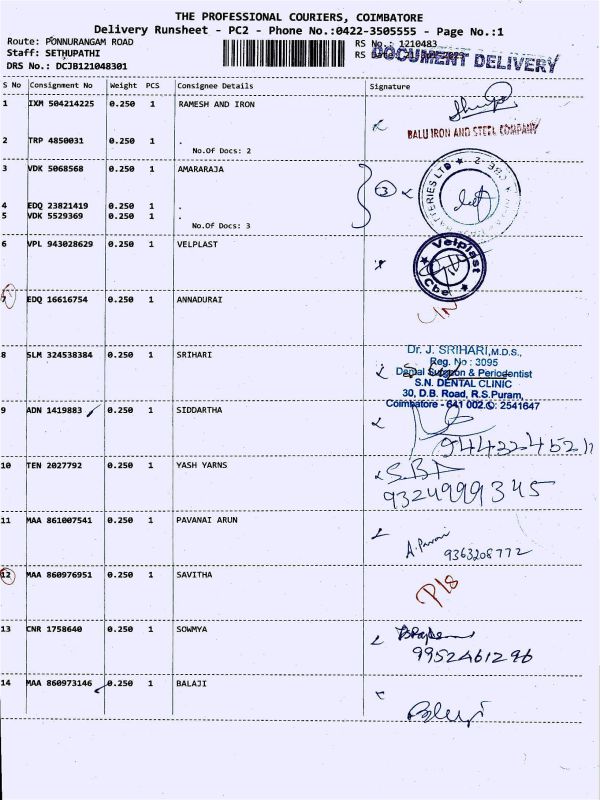 THE PROFESSIONAL COURIERS, COIMBATORE
Delivery Runsheet - PC2 - Phone No.:0422-3505555 - Page No.:1
Route: PONNURANGAM ROAD
RS No.: 1210483
Staff: SETHUPATHI
RS
DOCUMENT DELIVERY
DRS No.: DCJB121048301
S No Consignment No Weight PCS Consignee Details Signature
1 IXM 504214225 0.250 1 RAMESH AND IRON
BALU IRON AND STEEL COMPANY
2 TRP 4850031 0.250 1 .
No.Of Docs: 2
3 VDK 5068568 0.250 1 AMARARAJA
3
4 EDQ 23821419 0.250 1 .
5 VDK 5529369 0.250 1 .
No.Of Docs: 3
6 VPL 943028629 0.250 1 VELPLAST
Velplast
Cbe
7 EDQ 16616754 0.250 1 ANNADURAI
8 SLM 324538384 0.250 1 SRIHARI
Dr. J. SRIHARI, M.D.S.,
Reg. No : 3095
Dental Surgeon & Periodentist
S.N. DENTAL CLINIC
30, D.B. Road, R.S.Puram,
Coimbatore - 641 002. : 2541647
9 ADN 1419883 0.250 1 SIDDARTHA
10 TEN 2027792 0.250 1 YASH YARNS
9324999345
11 MAA 861007541 0.250 1 PAVANAI ARUN
9363208772
12 MAA 860976951 0.250 1 SAVITHA
13 CNR 1758640 0.250 1 SOWMYA
9952461296
14 MAA 860973146 0.250 1 BALAJI
Balaji